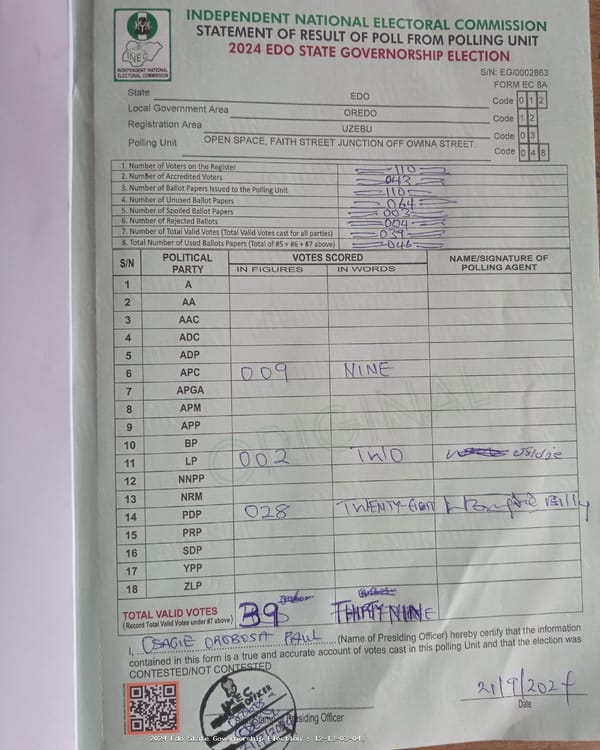 INDEPENDENT NATIONAL ELECTORAL COMMISSION
STATEMENT OF RESULT OF POLL FROM POLLING UNIT
2024 EDO STATE GOVERNORSHIP ELECTION
INEC
INDEPENDENT NATIONAL
ELECTORAL COMMISSION
S/N: EG/0002863
FORM EC 8A
State EDO Code 0 1 2
Local Government Area OREDO Code 1 2
Registration Area UZEBU Code 0 3
Polling Unit OPEN SPACE, FAITH STREET JUNCTION OFF OWINA STREET Code 0 4 8
1. Number of Voters on the Register 110
2. Number of Accredited Voters 043
3. Number of Ballot Papers Issued to the Polling Unit 110
4. Number of Unused Ballot Papers 064
5. Number of Spoiled Ballot Papers 003
6. Number of Rejected Ballots 004
7. Number of Total Valid Votes (Total Valid Votes cast for all parties) 039
8. Total Number of Used Ballots Papers (Total of #5 + #6 + #7 above) 046
S/N POLITICAL PARTY VOTES SCORED NAME/SIGNATURE OF POLLING AGENT
IN FIGURES IN WORDS
1 A
2 AA
3 AAC
4 ADC
5 ADP
6 APC 009 NINE
7 APGA
8 APM
9 APP
10 BP
11 LP 002 TWO
12 NNPP
13 NRM
14 PDP 028 TWENTY-EIGHT Billy
15 PRP
16 SDP
17 YPP
18 ZLP
ORIGINAL
TOTAL VALID VOTES 39 THIRTY NINE
(Record Total Valid Votes under #7 above)
I, OSAGIE OROBOSA PAUL (Name of Presiding Officer) hereby certify that the information
contained in this form is a true and accurate account of votes cast in this polling Unit and that the election was
CONTESTED/NOT CONTESTED
21/9/2024
Date
INEC
Presiding Officer
2024 Edo State Governorship Election : 12-12-03-048